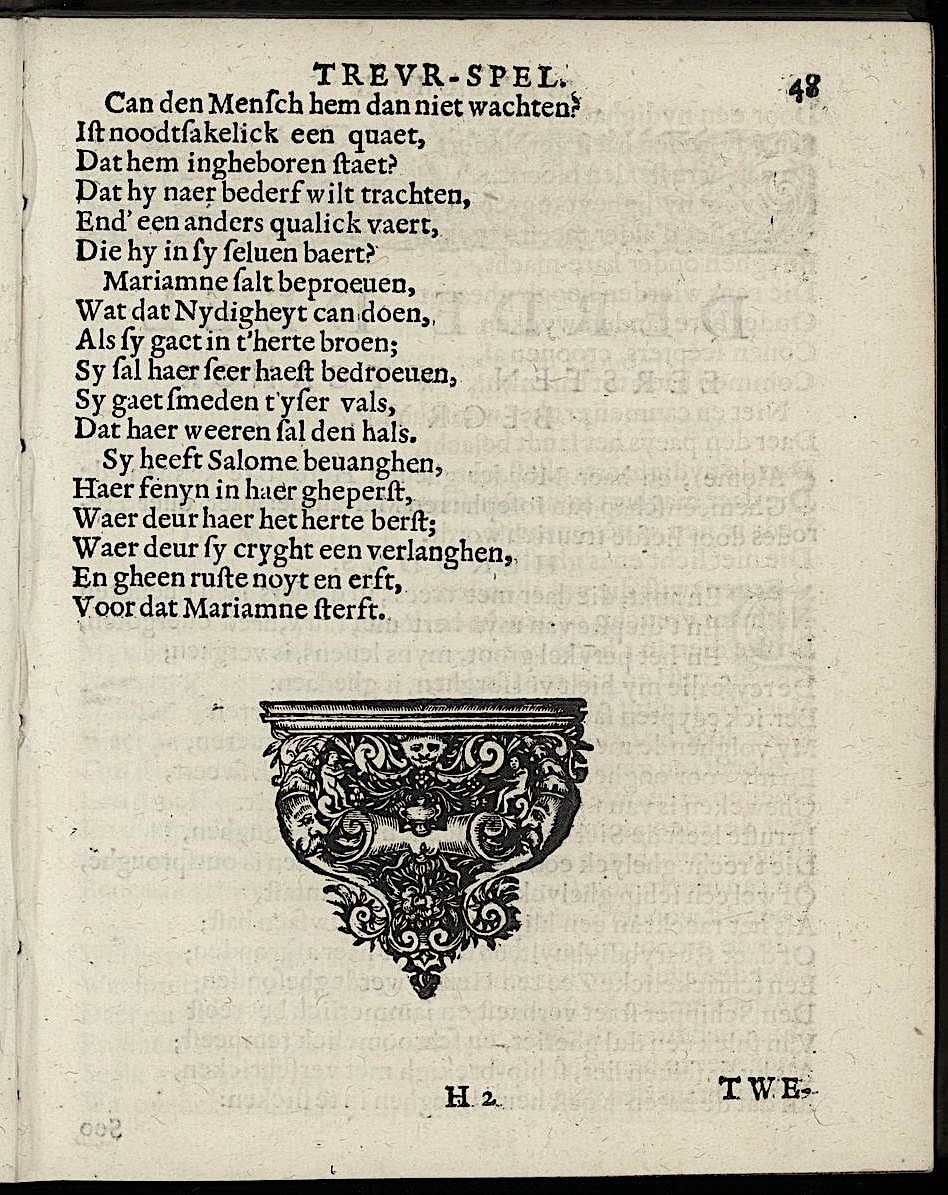 TREVR-SPEL. 48
Can den Menſch hem dan niet wachten?
Iſt noodtſakelick een quaet,
Dat hem ingheboren ſtaet?
Dat hy naer bederf wilt trachten,
End' een anders qualick vaert,
Die hy in ſy ſeluen baert?
Mariamne ſalt beproeuen,
Wat dat Nydigheyt can doen,
Als ſy gaet in t'herte broen;
Sy ſal haer ſeer haeſt bedroeuen,
Sy gaet ſmeden t'yſer vals,
Dat haer weeren ſal den hals.
Sy heeft Salome beuanghen,
Haer fenyn in haer gheperſt,
Waer deur haer het herte berſt;
Waer deur ſy cryght een verlanghen,
En gheen ruſte noyt en erft,
Voor dat Mariamne ſterft.
H 2 TWE-